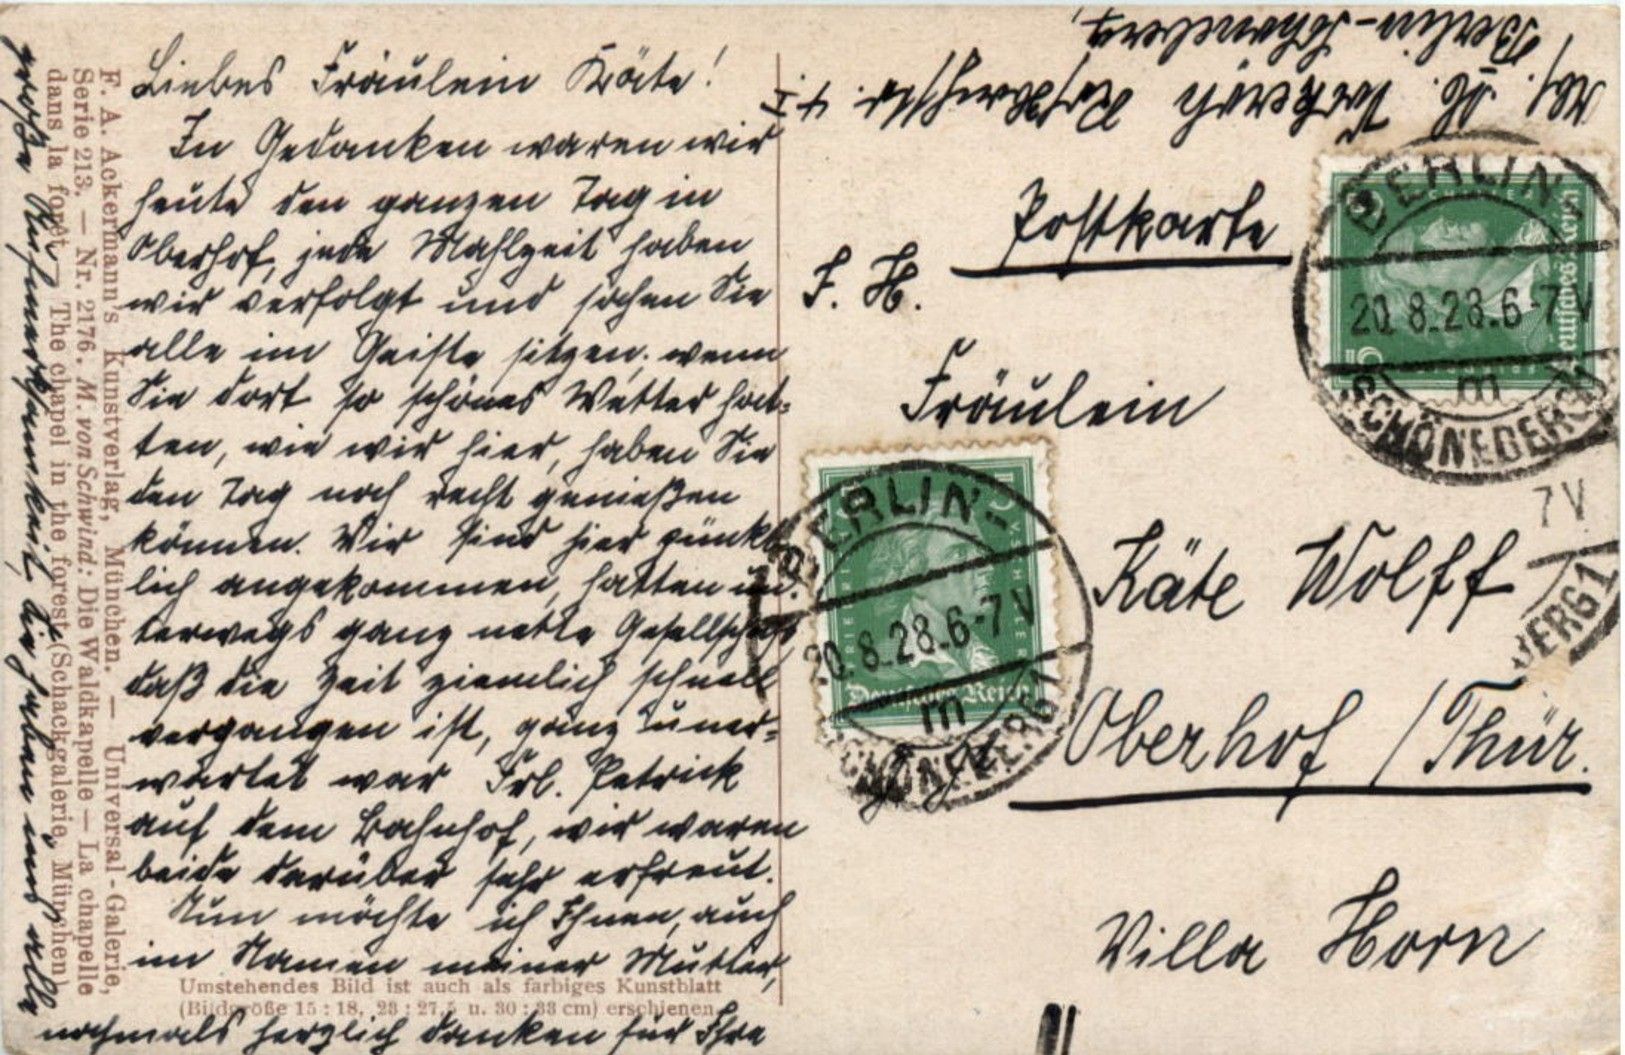 Liebes Fräulein Käte!
In Gedanken waren wir
heute den ganzen Tag in
Oberhof, jede Mahlzeit haben
wir verfolgt und sahen Sie
alle im Geiste sitzen. wenn
Sie dort so schönes Wetter hat=
ten, wie wir hier, haben Sie
den Tag noch recht genießen
können. Wir sind hier pünkt
lich angekommen, hatten un=
terwegs ganz nette Gesellschaft,
daß die Zeit ziemlich schnell
vergangen ist, ganz uner=
wartet war Frl. Patrick
auf dem Bahnhof, wir waren
beide darüber sehr erfreut.
Nun möchte ich Ihnen, auch
im Namen meiner Mutter,
nochmals herzlich danken für Ihre
große Aufmerksamkeit, die haben uns alle
F. A. Ackermann's Kunstverlag, München. — Universal-Galerie,
Serie 213. — Nr. 2176. M. von Schwind: Die Waldkapelle — La chapelle
dans la forêt — The chapel in the forest (Schackgalerie, München)
Umstehendes Bild ist auch als farbiges Kunstblatt
(Bildgröße 15:18, 23:27,5 u. 30:38 cm) erschienen.
Berlin-Schöneberg,
Postkarte
F. H.
Fräulein
Käte Wolff
Oberhof / Thür.
Villa Horn
BERLIN-
20.8.28.6-7V
m
SCHÖNEBERG 1
Deutsches Reich
BERLIN-
20.8.28.6-7V
m
SCHÖNEBERG 1
Deutsches Reich
7V
BERG 1